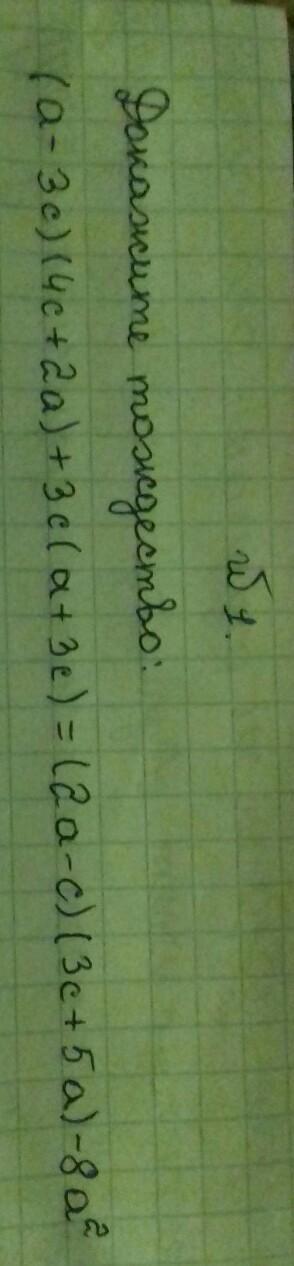 № 1.
Докажите тождество:
(a-3c)(4c+2a)+3c(a+3c)=(2a-c)(3c+5a)-8a²